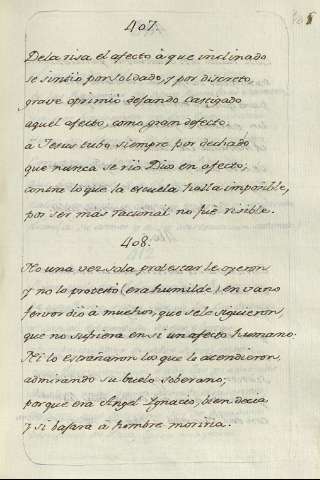 407.
De la risa, el afecto à que inclinado
se sintio por Soldado, y por discreto
grave oprimio dejando castigado
aquel afecto, como gran defecto.
à Jesus tubo siempre por dechado
que nunca se rio Divo en afecto,
contra lo que la escuela halla impoñble,
por ser mas racional no fue risible.
408.
No una vez sola protestar le oyeron
y no lo protestò (era humilde) en vano
fervor dio à muchos, que se le siguieron
que no sufriera en si un afecto humano.
Ni lo estrañaron los que le atendieron,
admirando su buelo soberano;
porque era Angel Ignacio, bien decia
y si bajara à hombre moriria.